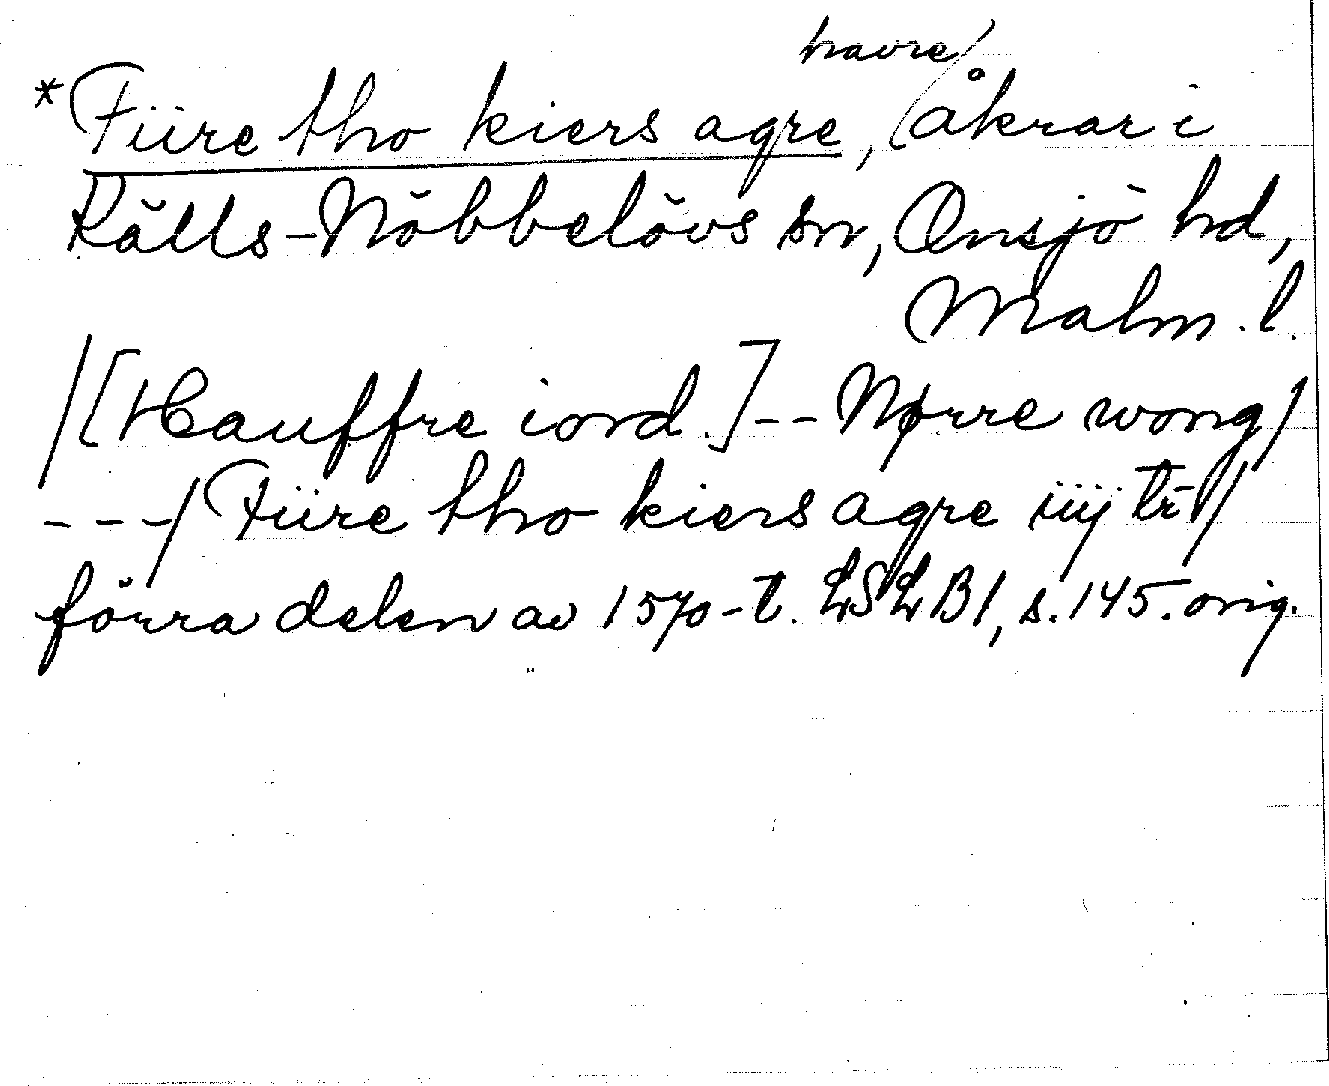 havre
*Fiire tho kiers agre, åkrar i
Källs-Nöbbelövs sn, Onsjö hd,
Malm. l.
/[Hauffre iord.]-- Nørre wong/
---/Fiire tho kiers agre iiij tr̄/
förra delen av 1570-t. LSLB1, s. 145. orig.